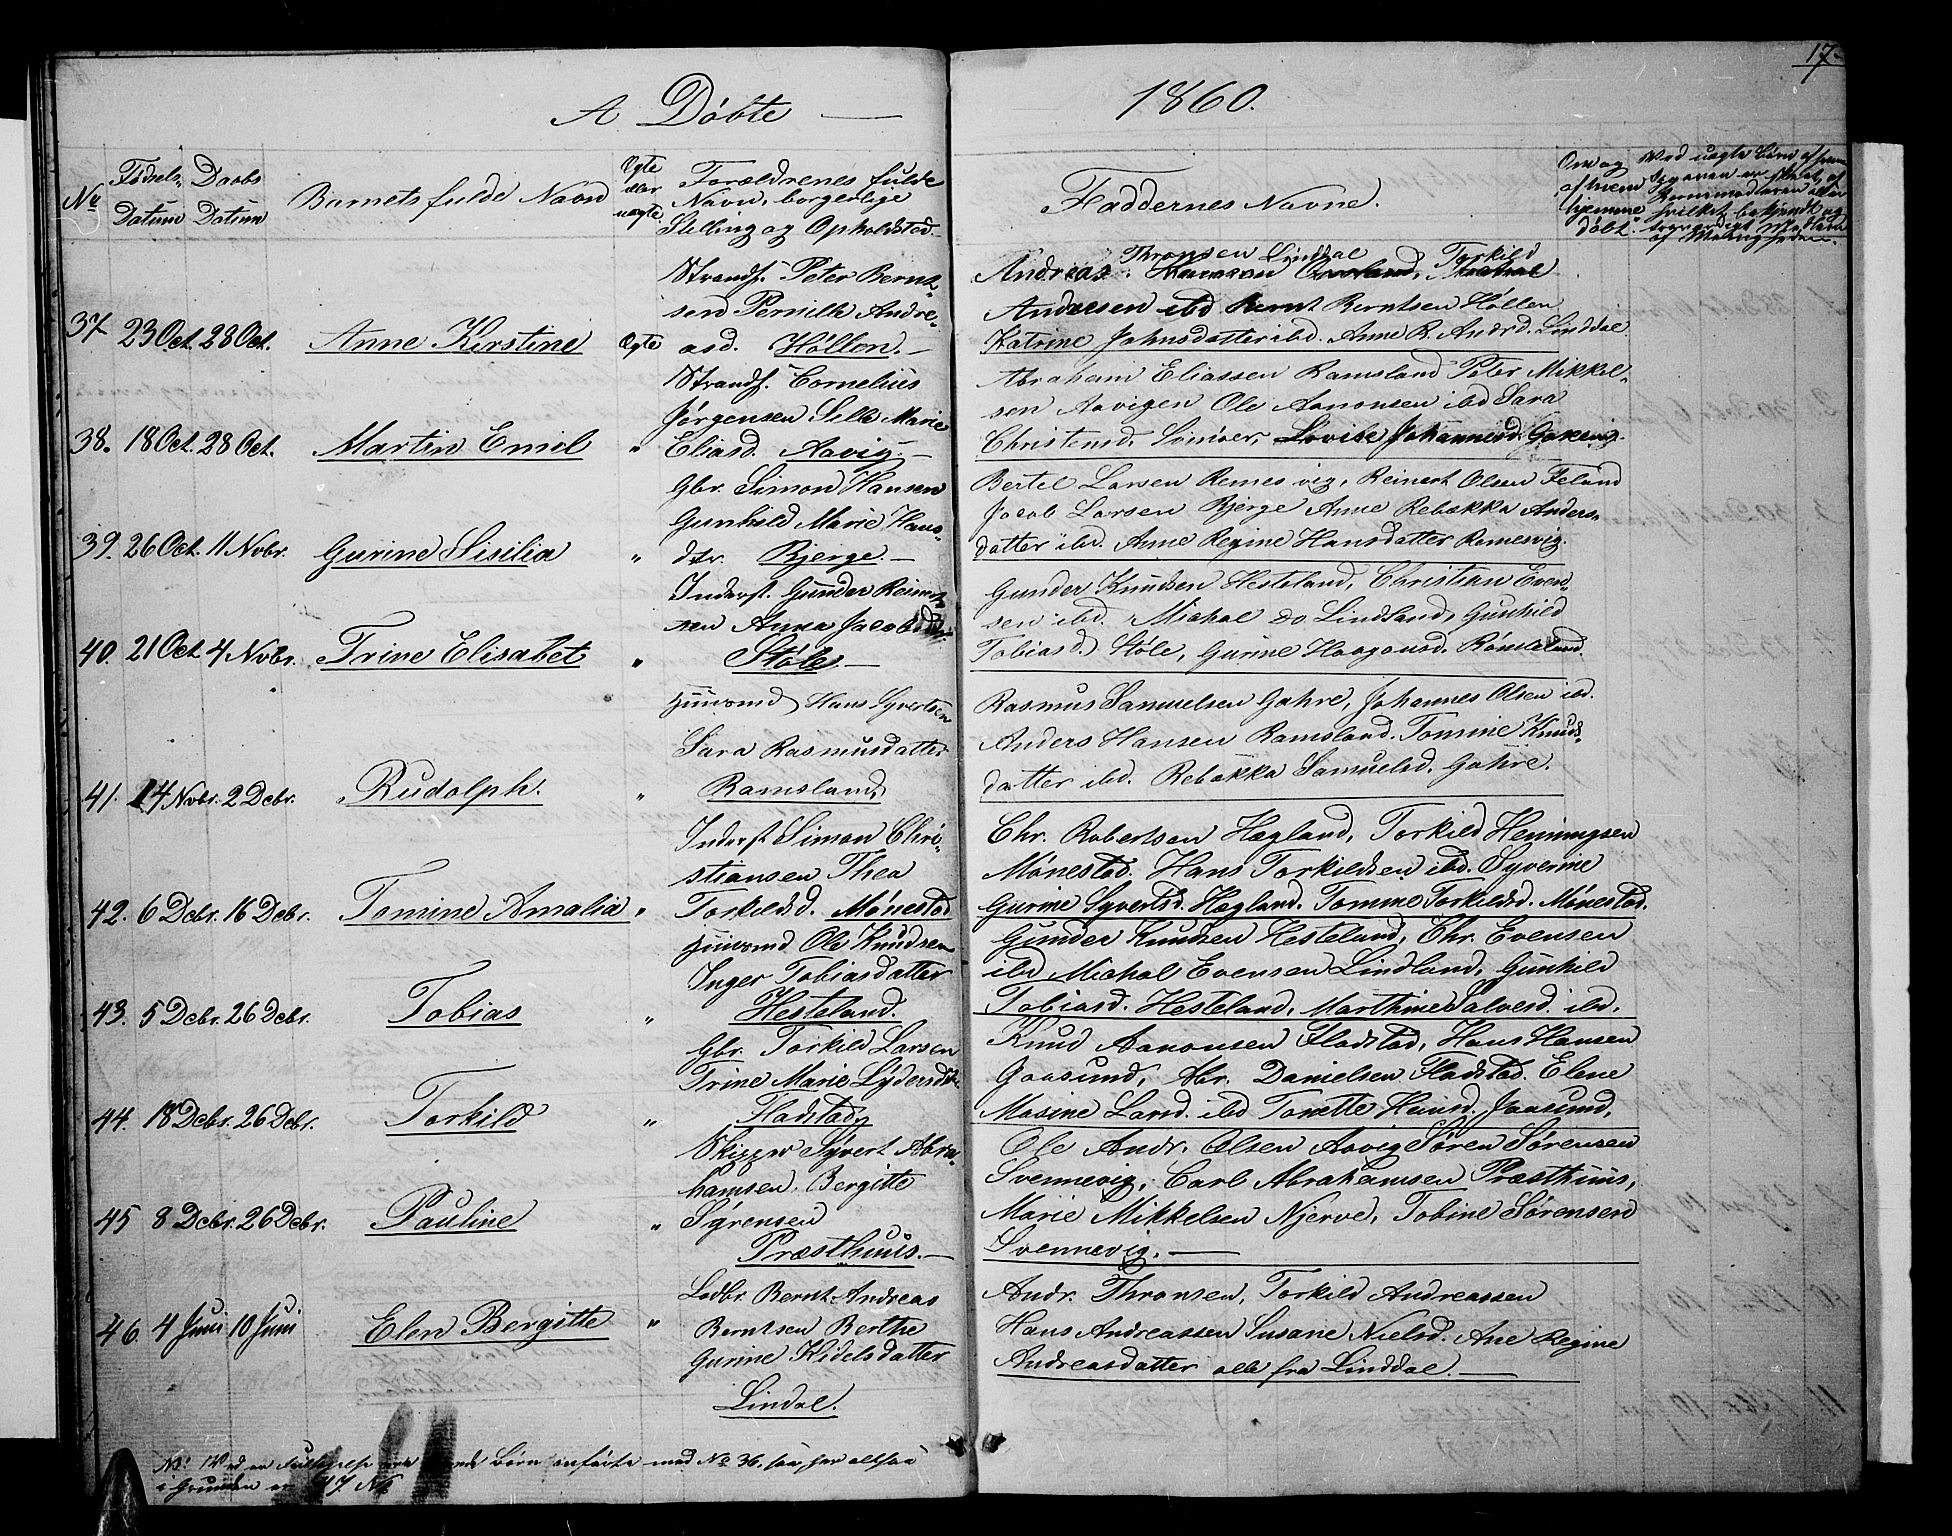 17
A Døbte — 1860.
No
Fødsels Datum
Daabs Datum
Barnets fulde Navn
Ægte eller uægte
Forældrenes fulde Navn, borgerlige Stilling og Opholdsted
Faddernes Navne.
Om og af hvem hjemme døbt.
37 23 Oct. 28 Oct. Anne Kirstine Ægte
Strandf. Peter Bernt-
sen Pernille Andre-
asd. Høllen.—
Thronsen Linddal Torkild
Andreas
Andersen ibd Bernt Berntsen Høllen
Katrine Johnsdatter ibd. Anne R. Andrd. Linddal
38. 18 Oct. 28 Oct. Martin Emil "
Strandf. Cornelius
Jørgensen Sille Marie
Eliasd. Aavig.—
Abraham Eliassen Ramsland Peter Mikkel-
sen Aavigen Ole Aanonsen ibd Sara
Christensd. Lovise Johannesd.
39. 26 Oct. 11 Novbr. Gurine Sisilia "
Gbr. Simon Hansen
Gunhild Marie Hans-
dtr. Bjerge.—
Bertel Larsen Remesvig, Reinert Olsen Feland
Jacob Larsen Bjerge Anne Rebækka Anders-
datter ibd. Anne Regine Hansdatter Remesvig.
40. 21 Oct 4 Novbr. Trine Elisabet "
Inderst. Gunder Reinert-
sen Anna Jacobsd
Støle—
Gunder Knudsen Hesteland, Christian Even-
sen ibd. Michal do Lindland, Gunhild
Tobiasd. Støle, Gurine Haagensd.
41. 14 Novbr. 2 Debr. Rudolph. "
Huusmd Hans Syvertsen
Sara Rasmusdatter
Ramsland,
Rasmus Samuelsen Gahre, Johannes Olsen ibd.
Anders Hansen Ramsland. Tomine Knuds-
datter ibd. Rebækka Samuelsd. Gahre.
42. 6 Debr. 16 Debr. Tomine Amalia "
Inderst Simon Chri-
stiansen Thea
Torkildsd. Mønestad
Chr. Robertsen Hægland, Torkild Hemingsen
Mønestad. Hans Torkildsen ibd. Syverine
Gurine Syvertsd. Hægland. Tomine Torkildsd. Mønestad.
43. 5 Debr. 26 Debr. Tobias "
Huusmd Ole Knudsen
Inger Tobiasdatter
Hesteland.
Gunder Knudsen Hesteland, Chr. Evensen
ibd Michal Evensen Lindland, Gunhild
Tobiasd. Hesteland, Marthine Salvesd. ibd.
44. 18 Debr. 26 Debr. Torkild "
Gbr. Torkild Larsen
Trine Marie Lydersdtr
Fladstad
Knud Aanonsen Fladstad, Hans Hansen
Gaasund, Abr. Danielsen Fladstad. Elene
Masine Larsd. ibd Tonette Hansd. Jaasund,
45 8 Debr. 26 Debr. Pauline "
Skipper Syvert Abra-
hamsen. Bergitte
Sørensen
Præsthuus.—
Ole Andr. Olsen Aavig Søren Sørensen
Svennevig, Carl Abrahamsen Præsthuus,
Marie Mikkelsen Njerve, Tobine Sørensen
Svennevig.—
46. 4 Juni 10 Juni Elen Bergitte "
Lodbr. Bernt Andreas
Berntsen Berthe
Gurine Kidelsdatter
Lindal.
Andr. Thronsen, Torkild Andreassen
Hans Andreassen Susane Nielsd. Ane Regine
Andreasdatter alle fra Linddal.—
Børn anførte med No 36, saa
i Grunden er 47 No